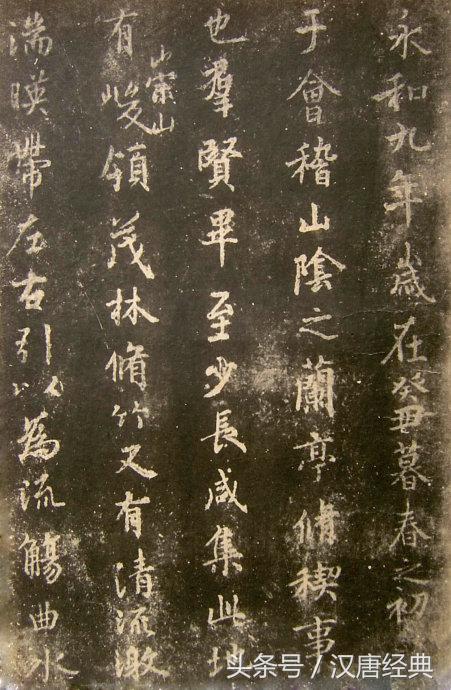 永和九年歲在癸丑暮春之初會
于會稽山陰之蘭亭脩稧事
也羣賢畢至少長咸集此地
有崇山峻領茂林脩竹又有清流激
湍暎帶左右引以為流觴曲水
头条号 / 汉唐经典